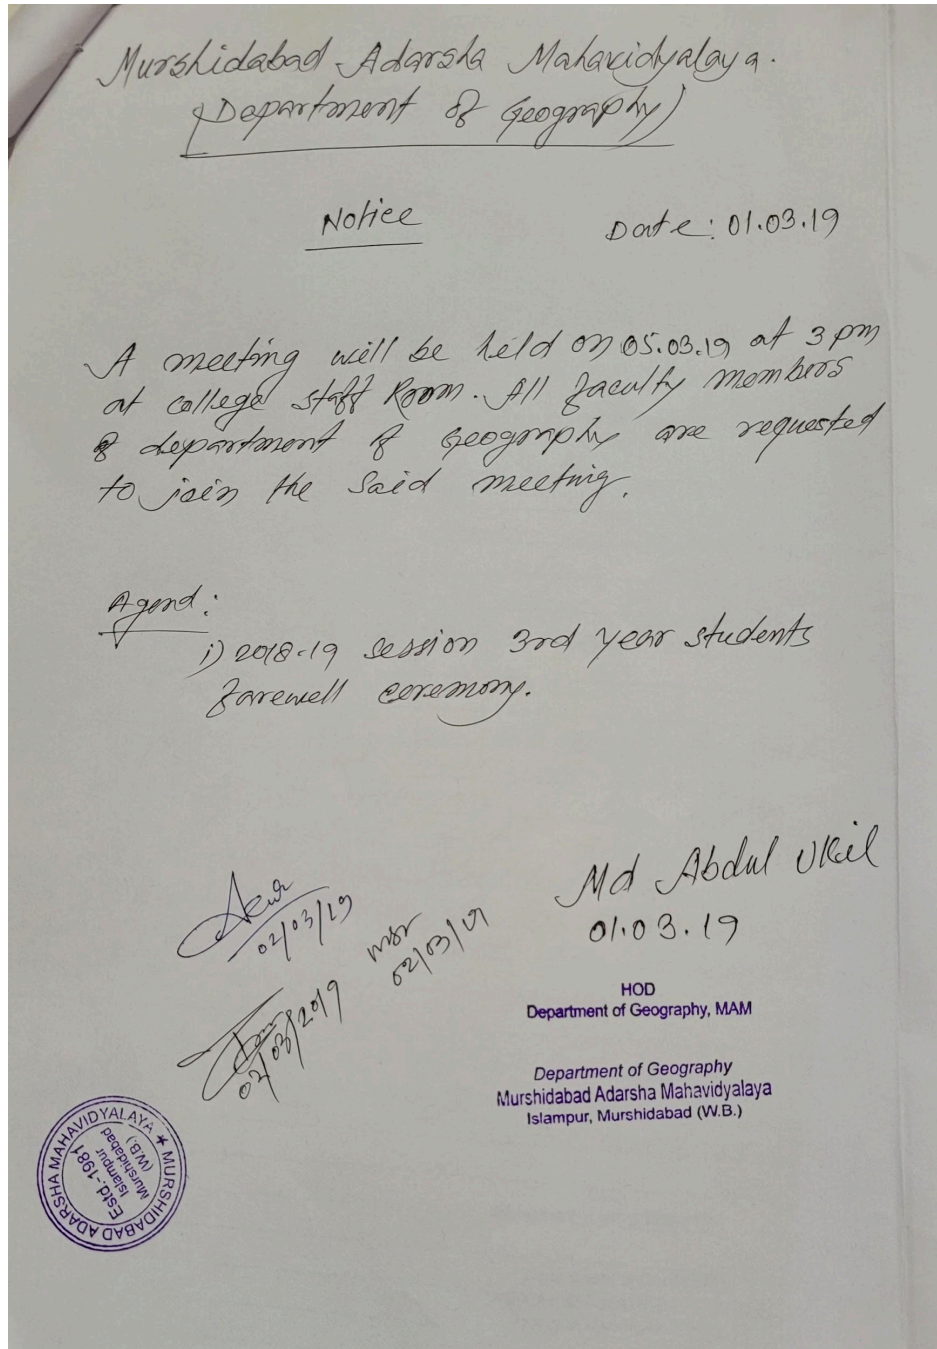 Murshidabad Adarsha Mahavidyalaya.
(Department of Geography)
Notice
Date: 01.03.19
A meeting will be held on 05.03.19 at 3 pm
at college staff Room. All faculty members
of department of Geography are requested
to join the said meeting.
Agend:
i) 2018-19 session 3rd year students
farewell ceremony.
02/03/19
02/03/19
02/03/2019
Md Abdul Ukil
01.03.19
HOD
Department of Geography, MAM
Department of Geography
Murshidabad Adarsha Mahavidyalaya
Islampur, Murshidabad (W.B.)
MURSHIDABAD ADARSHA MAHAVIDYALAYA ★
Estd.-1981
Islampur
Murshidabad
(W.B.)